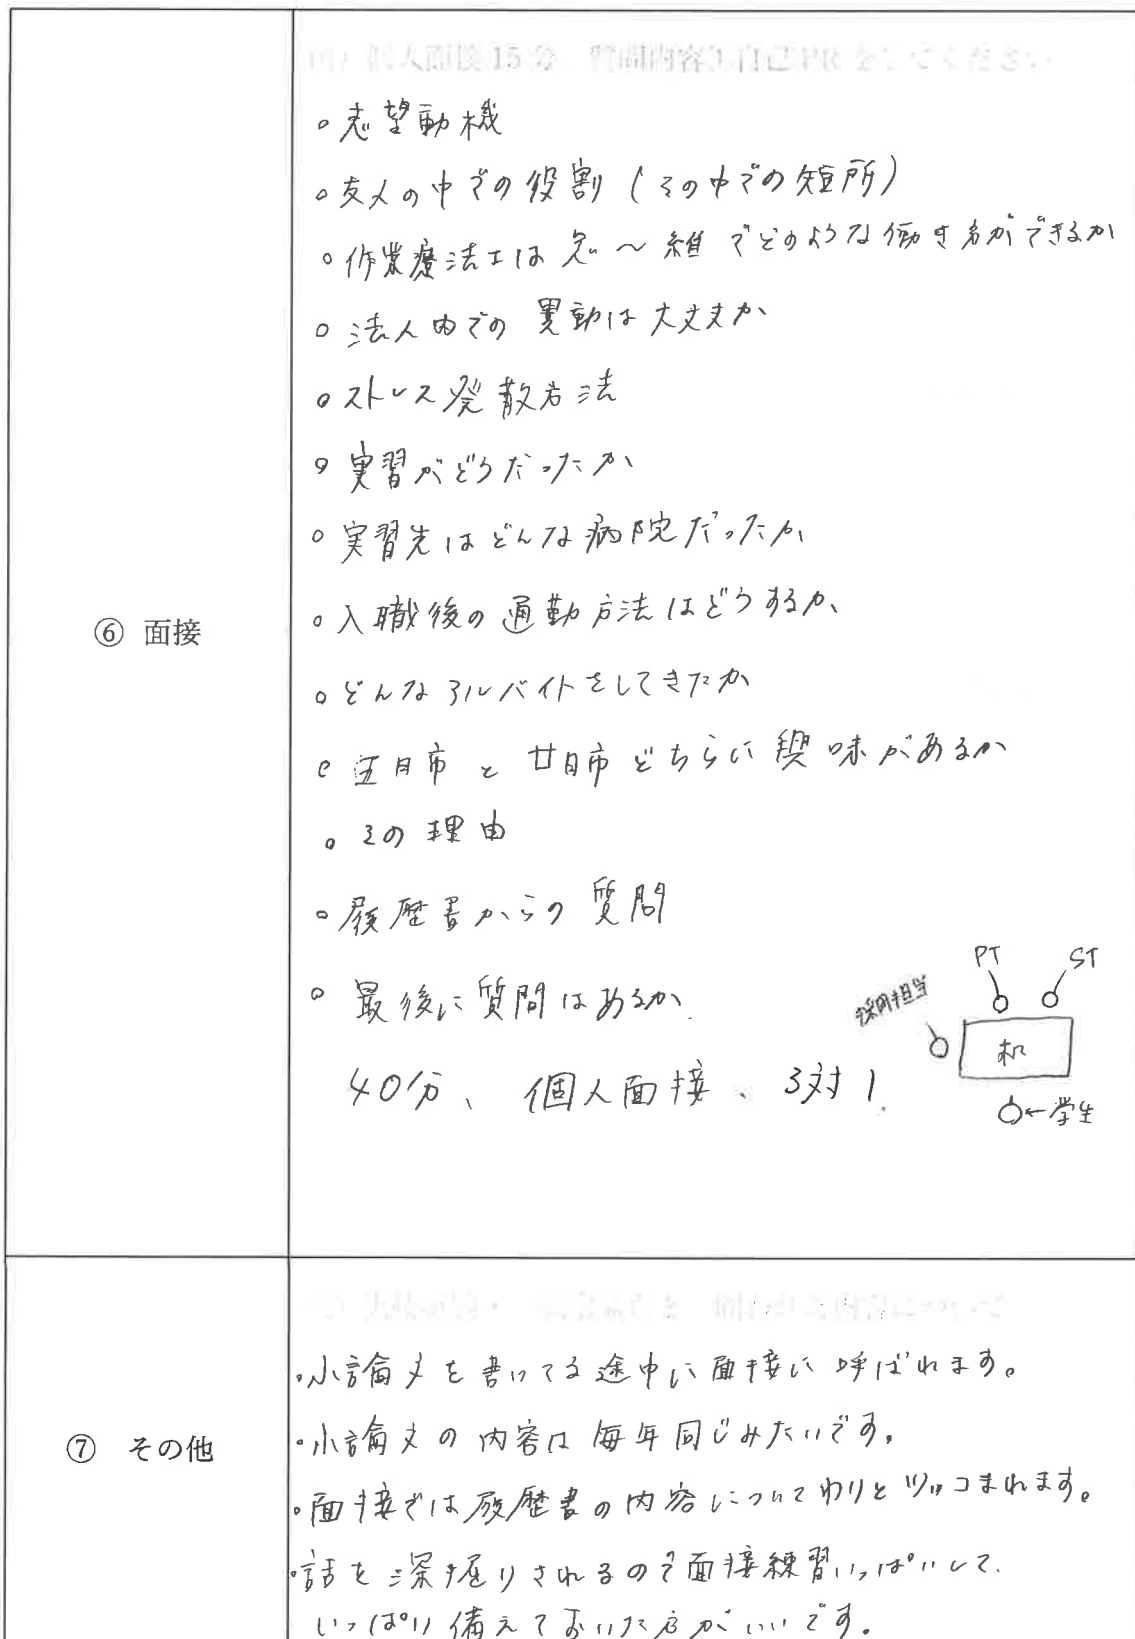 ⑥ 面接
(例) 個人面接 15 分 質問内容①自己PRをしてください
○志望動機
○友人の中での役割(その中での短所)
○作業療法士は急〜維でどのような働き方ができるか
○法人内での異動は大丈夫か
○ストレス発散方法
○実習がどうだったか
○実習先はどんな病院だったか
○入職後の通勤方法はどうするか
○どんなアルバイトをしてきたか
○五日市と廿日市どちらに興味があるか
○その理由
○履歴書からの質問
○最後に質問はあるか
40分、個人面接、3対1.
PT ST
採用担当
机
←学生
⑦ その他
・小論文を書いてる途中に面接に呼ばれます。
・小論文の内容は毎年同じみたいです。
・面接では履歴書の内容についてわりとツッコまれます。
・話を深掘りされるので面接練習いっぱいして、
いっぱい備えておいた方がいいです。